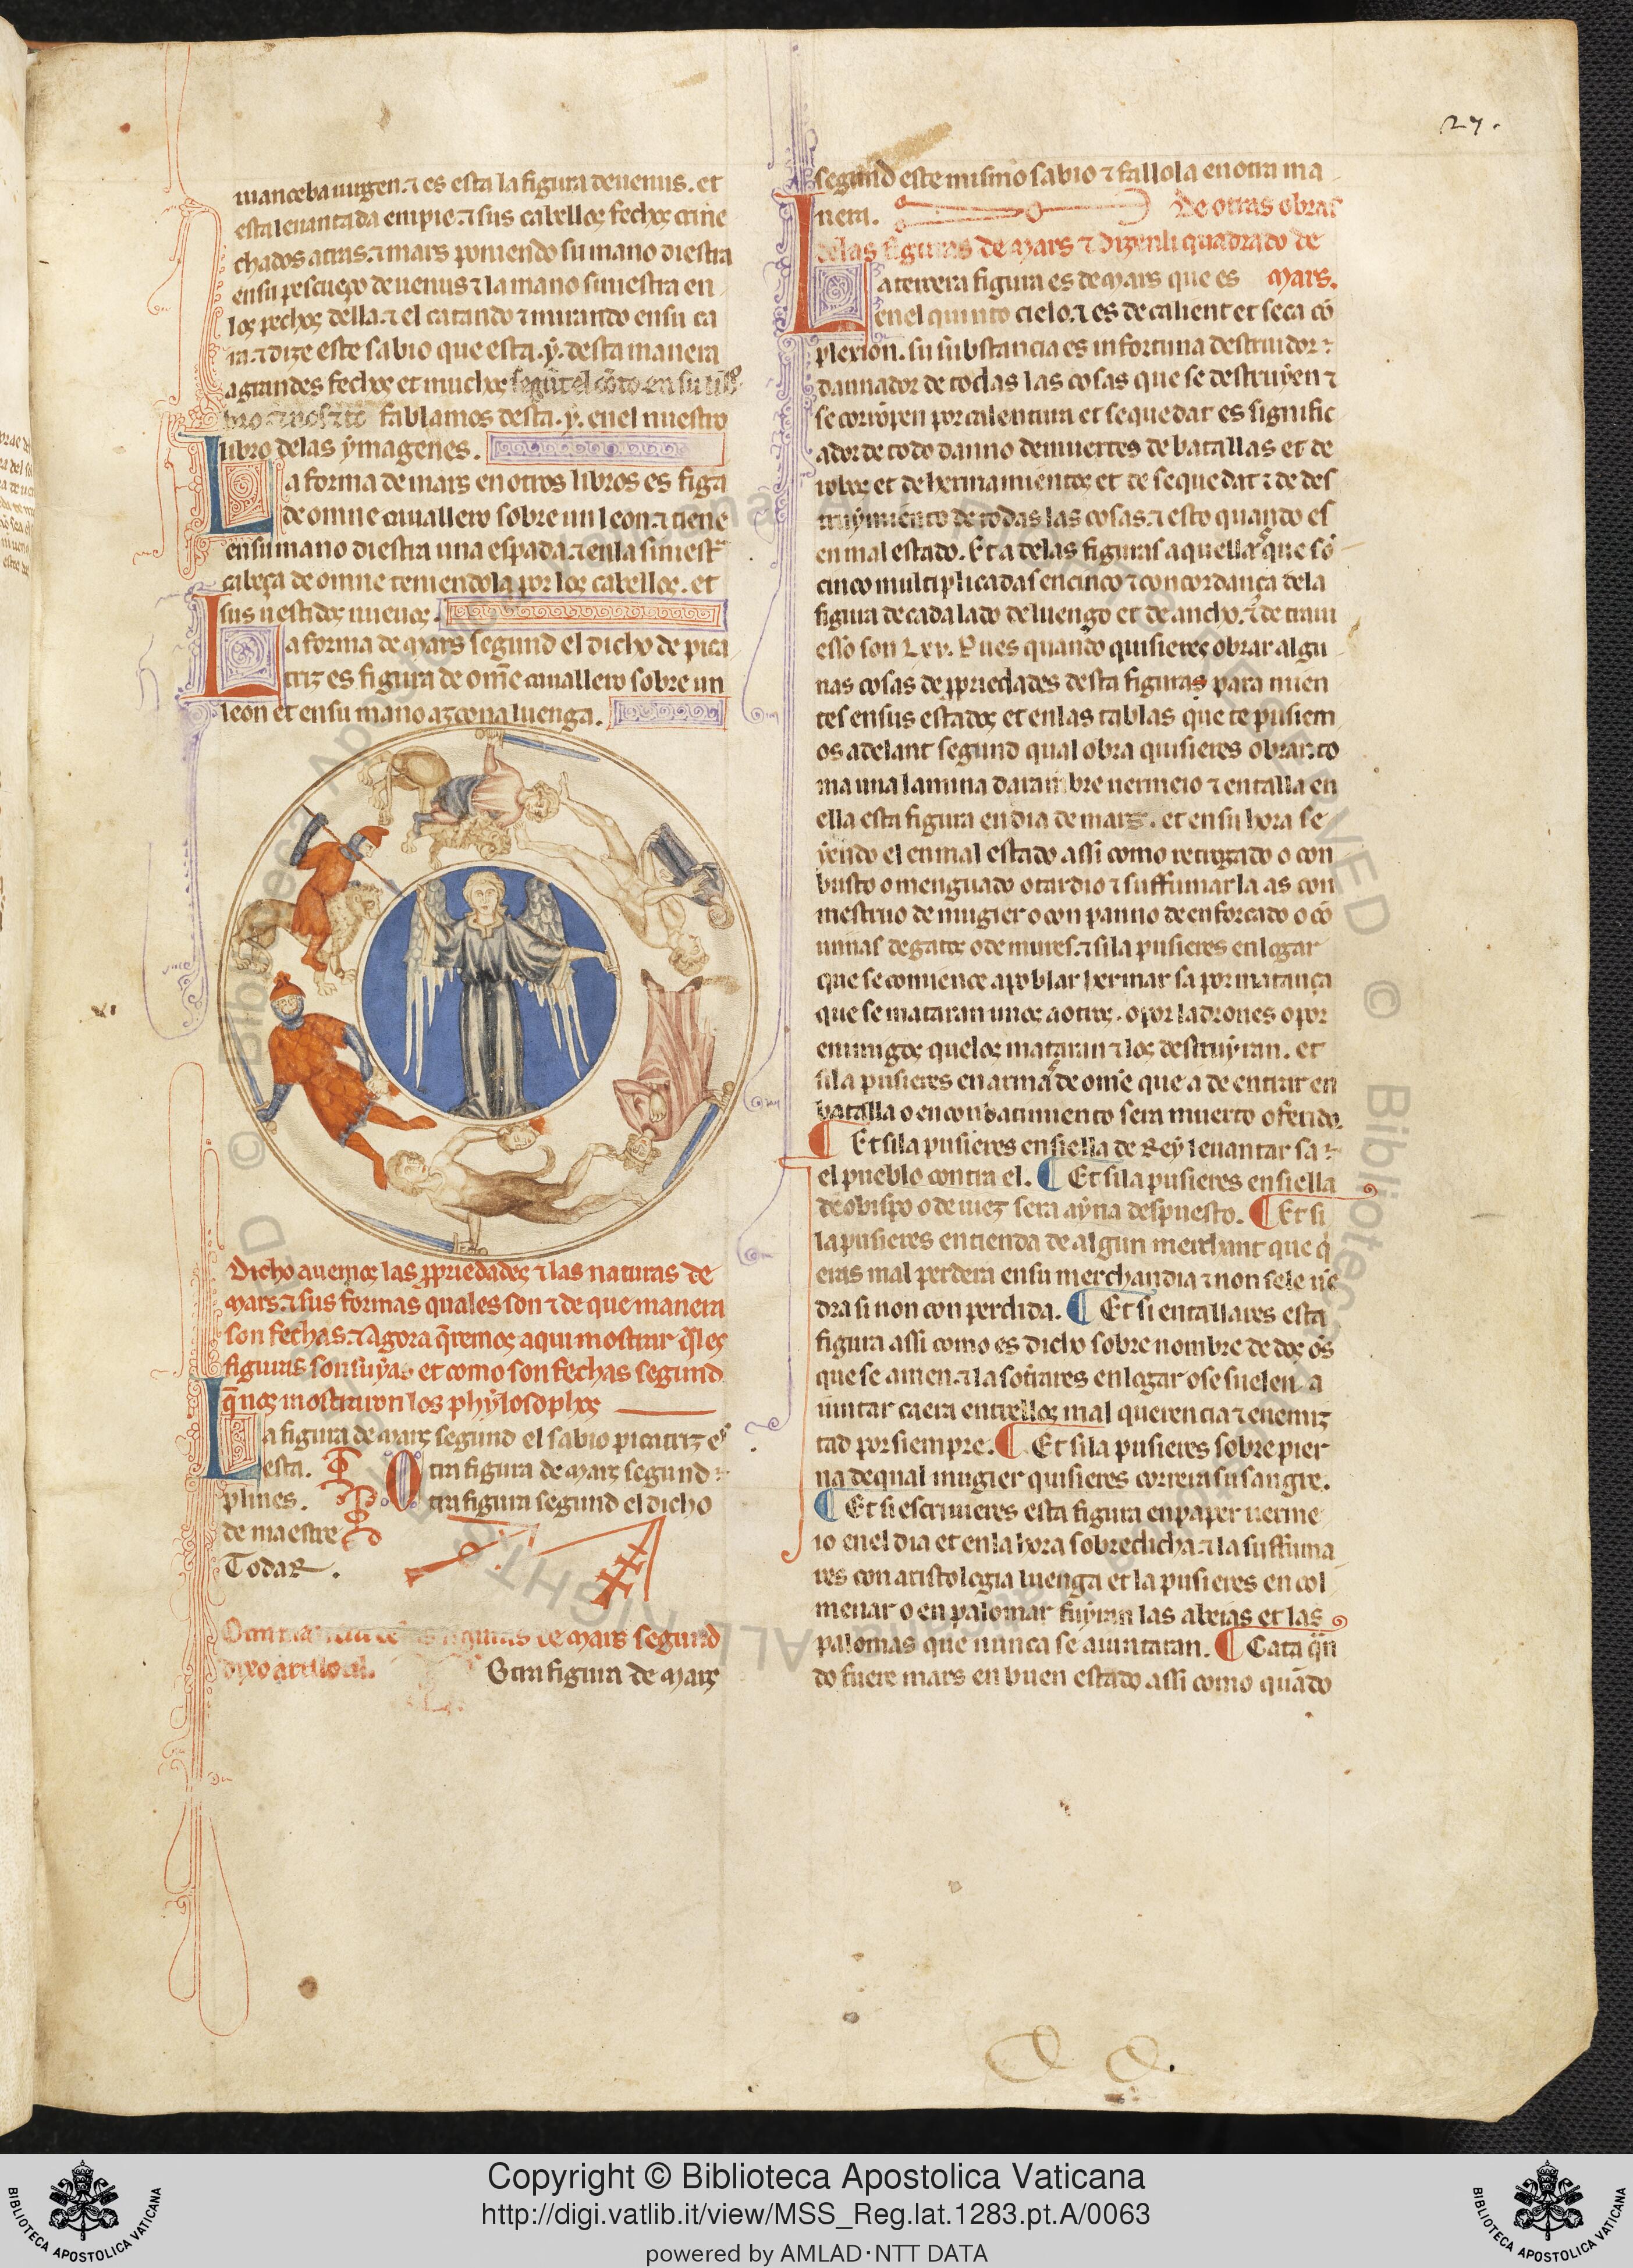 27.
manceba uirgen. ⁊ es esta la figura de uenus. et
esta leuantada en pie. ⁊ sus cabellos fechos crine
chados atras. ⁊ mars poniendo su mano diestra
en su pescueço de uenus ⁊ la mano siniestra en
los pechos della. ⁊ el catando ⁊ mirando en su ca
ra. ⁊ dize este sabio que esta .y. desta manera
a grandes fechos et muchos
fablamos desta .y. en el nuestro
libro delas ymagenes.
La forma de mars en otros libros es figa
de omne cauallero sobre un leon. ⁊ tiene
en su mano diestra una espada. ⁊ en la siniestra
cabeça de omne teniendola por los cabellos. et
sus uestidos nueuos.
La forma de mars segund el dicho de pica
triz es figura de ome cauallero sobre un
leon et en su mano azcona luenga.
Dicho auemos las ppriedades ⁊ las naturas de
mars. ⁊ sus formas quales son ⁊ de que manera
son fechas. ⁊ Agora q̃remos aqui mostrar q̃les
figuras son suyas et como son fechas segund
q̃ nos mostraron los phylosophos
La figura de mars segund el sabio picatriz es
esta. Otra figura de mars segund
plines. otra figura segund el dicho
de maestre
Todar.
Otra figuras de mars segund
dixo Otra figura de mars
segund este mismo sabio ⁊ fallola en otra ma
nera. De otras obras
delas figuras de mars ⁊ dizenli quadrado de
La tercera figura es de mars que es mars.
en el quinto cielo. ⁊ es de calient et seca cō
plexion. su substancia es infortuna destruidor ⁊
dannador de todas las cosas que se destruyen ⁊
se corrōpen por calentura et sequedat es signific
ador de todo danno de muertes de batallas et de
robos et de hermamientos et de sequedat ⁊ de des
truymiento de todas las cosas. ⁊ esto quando es
en mal estado. Et a delas figuras aquella que sō
cinco multiplicadas en cinco ⁊ concordança dela
figura de cada lado de luengo et de ancho. ⁊ de traui
esso son Lxv. Pues quando quisieres obrar algu
nas cosas de ppriedades desta figuras para mien
tes en sus estados et en las tablas que te pusiem
os adelant segund qual obra quisieres obrar. to
ma una lamina darambre uermeio ⁊ entalla en
ella esta figura en dia de mars. et en su hora se
yendo el en mal estado assi como retrogado o con
busto o menguado o tardio ⁊ suffumarla as con
mestruo de mugier o con panno de enforcado o cō
urinas de gatos o de mures. ⁊ si la pusieres en logar
que se comience a poblar hermar sa por matança
que se mataran unos a otros. o por ladrones o por
enemigos que los mataran ⁊ los destruyran. et
si la pusieres en arma de ome que a de entrar en
batalla o en conbatimiento sera muerto o ferido.
¶ Et si la pusieres en siella de Rey leuantar sa
el pueblo contra el. ¶ Et si la pusieres en siella
de obispo o de iuez sera ayna despuesto. ¶ Et si
la pusieres en tienda de algun merchant que q̃
eras mal perdera en su merchandia ⁊ non sele uē
dra si non con perdida. ¶ Et si entallares esta
figura assi como es dicho sobre nombre de dos ōs
que se amen. ⁊ la soterares en logar o se suelen a
iuntar caera entrellos mal querencia ⁊ enemiz
tad por siempre. ¶ Et si la pusieres sobre pier
na dequal mugier quisieres correra su sangre.
¶ Et si escriuieres esta figura en paper uerme
io en el dia et en la hora sobredicha. ⁊ la suffuma
res con aristologia luenga et la pusieres en col
menar o en palomar fuyran las abeias et las
palomas que nunca se aiuntaran. ¶ Cata q̃n
do fuere mars en buen estado assi como quādo
Copyright © Biblioteca Apostolica Vaticana
http://digi.vatlib.it/view/MSS_Reg.lat.1283.pt.A/0063
powered by AMLAD·NTT DATA
BIBLIOTECA APOSTOLICA VATICANA
BIBLIOTECA APOSTOLICA VATICANA